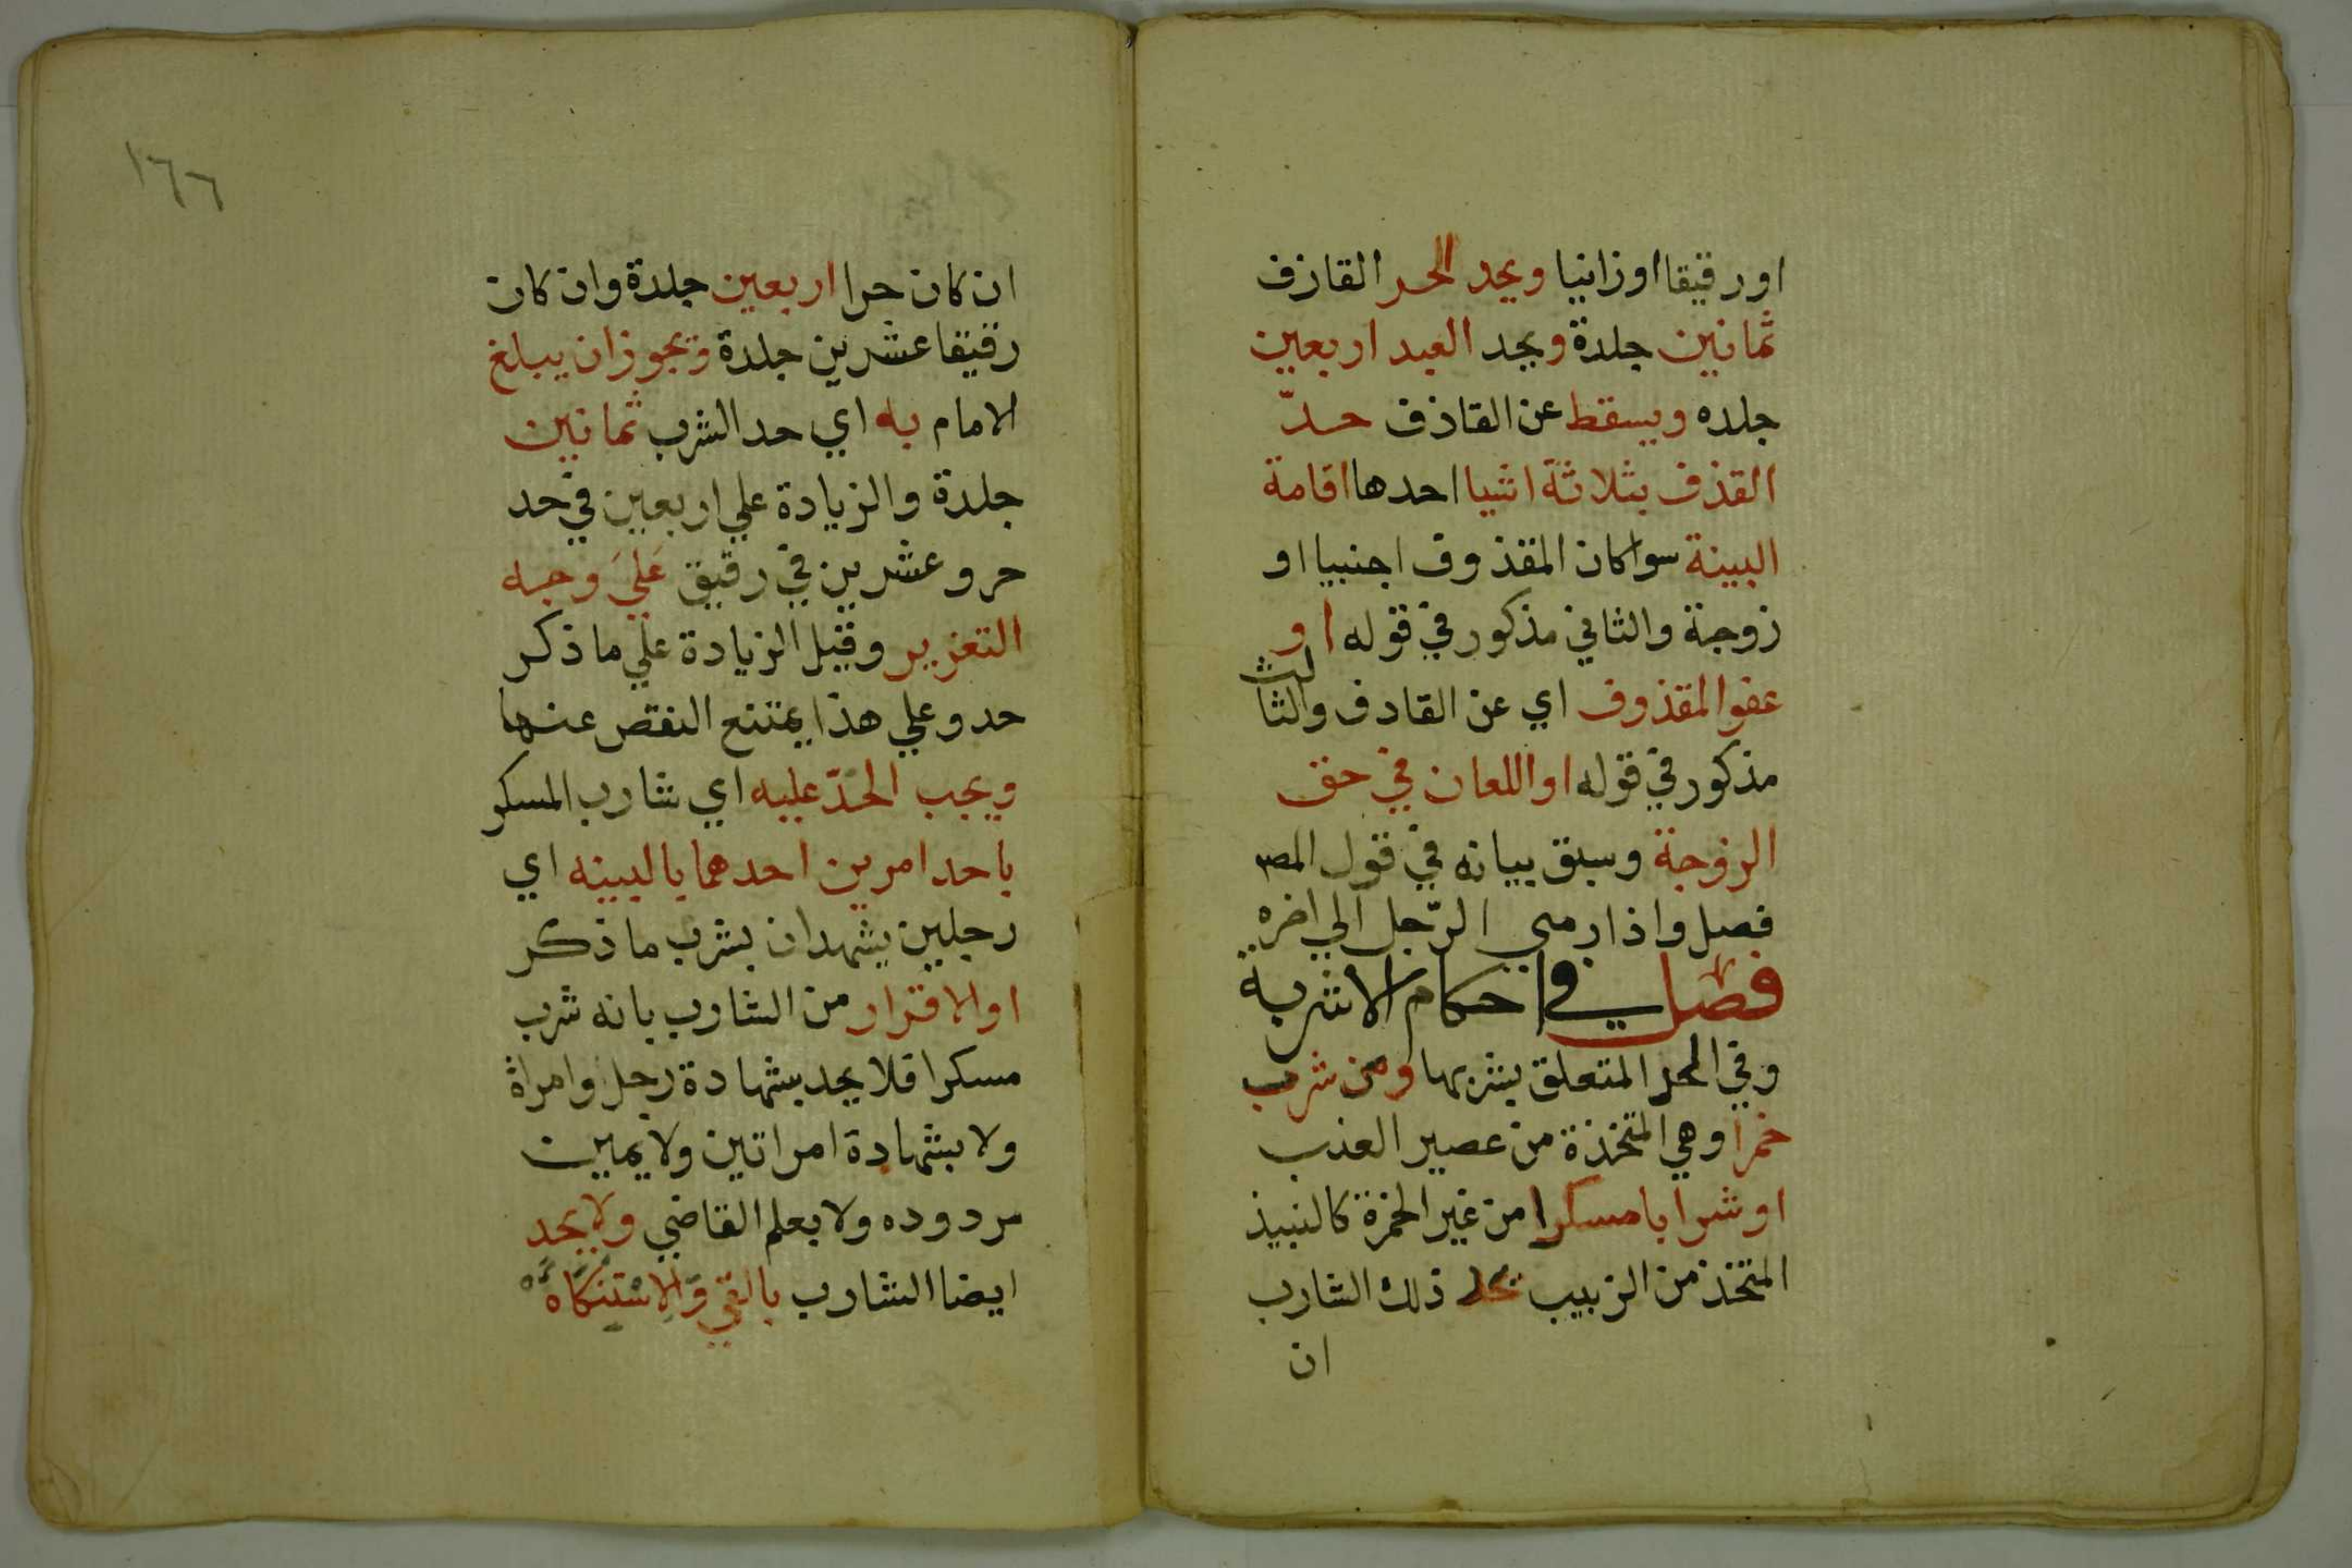 اورقيقا اوزانيا ويحد الحر القازف
ثمانين جلدة ويحد العبد اربعين
جلده ويسقط عن القاذف حدّ
القذف بثلاثة اشيا احدها اقامة
البينة سوا كان المقذوف اجنبيا او
زوجة والثاني مذكور في قوله او
عفو المقذوف اي عن القادف والثالث
مذكور في قوله او اللعان في حق
الزوجة وسبق بيانه في قول المص
فصل واذا رمي الرّجل الي اخره
فصل في احكام الاشربة
وفي الحد المتعلق بشربها ومن شرب
خمرا وهي المتخذة من عصير العنب
او شرابا مسكرا من غير الخمرة كالنبيذ
المتخذ من الزبيب يحد ذلك الشارب
ان
١٦٦
ان كان حرا اربعين جلدة وان كان
رقيقا عشرين جلدة ويجوز ان يبلغ
الامام به اي حد الشرب ثمانين
جلدة والزيادة علي اربعين في حد
حر وعشرين في رقيق عَليَ وجه
التعزير وقيل الزيادة علي ما ذكر
حد وعلي هذا يمتنع النقص عنها
ويجب الحدّ عليه اي شارب المسكر
باحد امرين احدهما بالبينه اي
رجلين يشهدان بشرب ما ذكر
او الاقرار من الشارب بانه شرب
مسكرا فلا يحد بشهادة رجل وامراة
ولا بشهادة امراتين ولا يمين
مردوده ولا بعلم القاضي ولا يحد
ايضا الشارب بالقي والاستنكاه